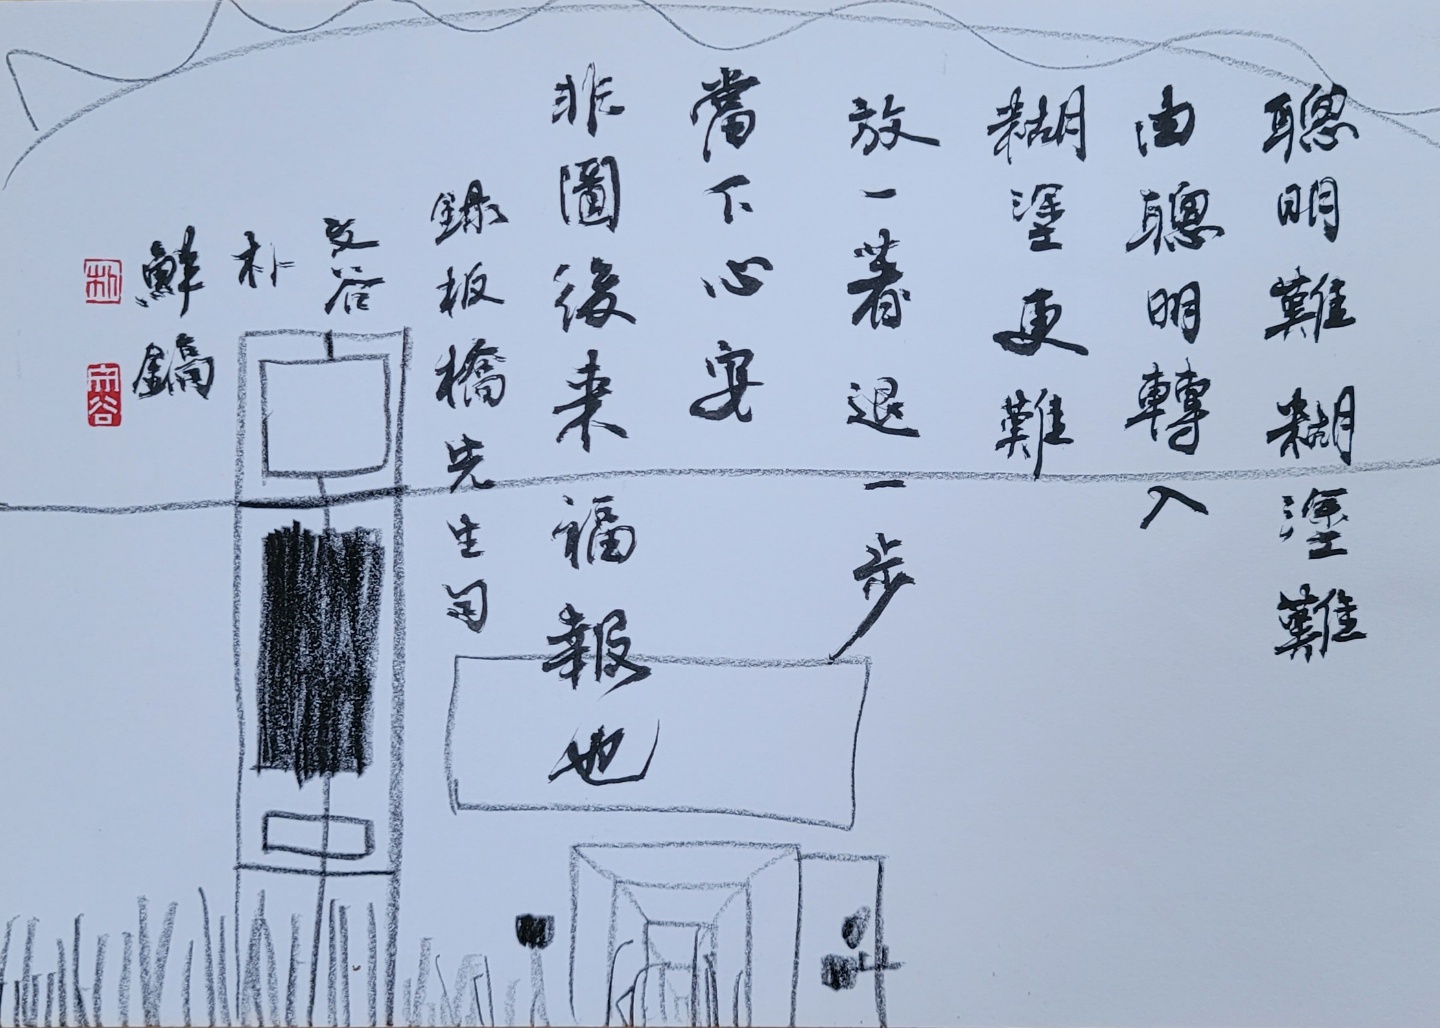 聰明難糊塗難
由聰明轉入
糊塗更難
放一著退一步
當下心安
非圖後來福報也
錄板橋先生句
谷
朴
鮮鎬
朴
谷